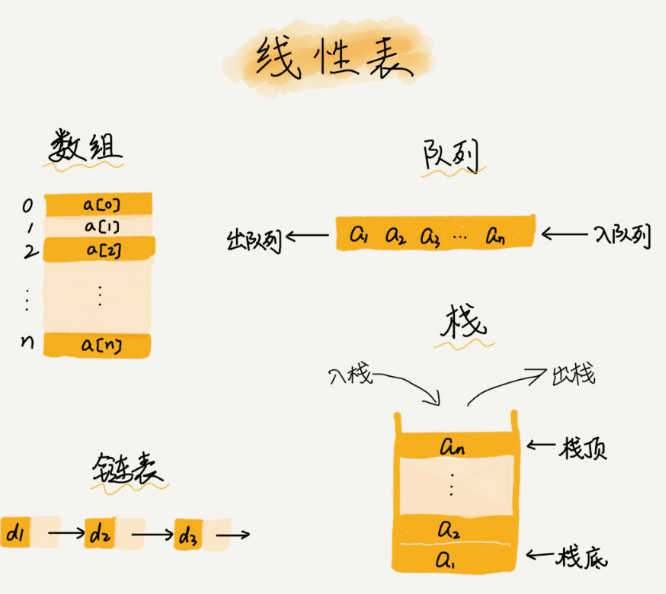 线性表
数组
0 a[0]
1 a[1]
2 a[2]
⋮ ⋮
n a[n]
队列
出队列 a1 a2 a3 … an 入队列
栈
入栈 出栈
an 栈顶
⋮
a2
a1 栈底
链表
d1 d2 d3